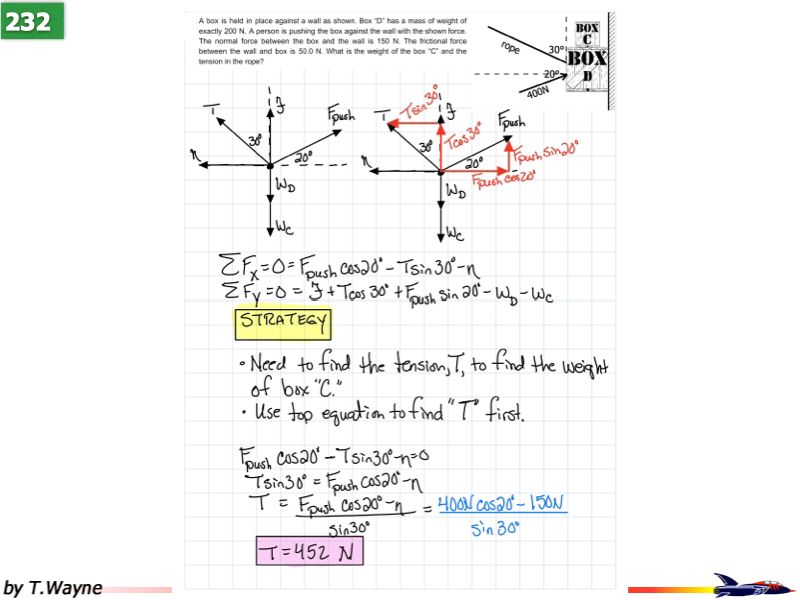 232
A box is held in place against a wall as shown. Box "D" has a mass of weight of
exactly 200 N. A person is pushing the box against the wall with the shown force.
The normal force between the box and the wall is 150 N. The frictional force
between the wall and box is 50.0 N. What is the weight of the box "C" and the
tension in the rope?
rope
30°
BOX
C
BOX
D
20°
400N
T
30°
F
Fpush
20°
n
WD
WC
T
Tsin30°
F
30°
Tcos30°
Fpush
20°
Fpush sin20°
Fpush cos20°
n
WD
WC
ΣFx=0=Fpush cos20°-Tsin30°-n
ΣFy=0= F+Tcos30°+Fpush sin 20°-WD-WC
STRATEGY
• Need to find the tension, T, to find the weight
of box "C."
• Use top equation to find "T" first.
Fpush cos20°-Tsin30°-n=0
Tsin30°=Fpush cos20°-n
T = Fpush cos20°-n / sin30° = 400N cos20°-150N / sin30°
T=452 N
by T.Wayne